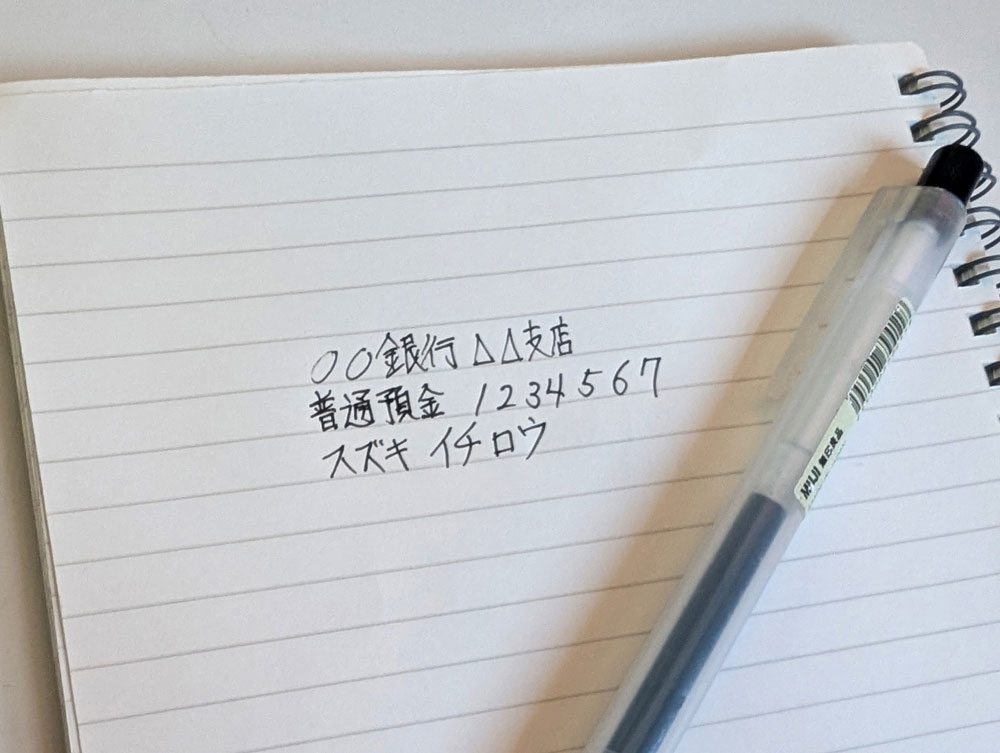 〇〇銀行 △△支店
普通預金 1234567
スズキ イチロウ
MUJI 無印良品